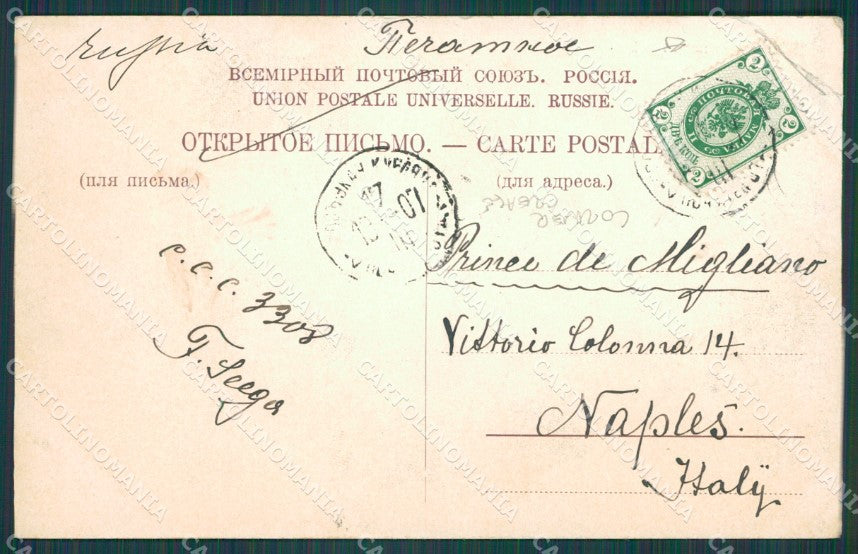 russia Печатное
ВСЕМІРНЫЙ ПОЧТОВЫЙ СОЮЗЪ. РОССІЯ.
UNION POSTALE UNIVERSELLE. RUSSIE.
ОТКРЫТОЕ ПИСЬМО. — CARTE POSTAL
(для письма.)
(для адреса.)
2
2
2
2
ПОЧТОВАЯ МАРКА
07
CORNER
CREASE
Prince de Migliano
Vittorio Colonna 14.
Naples.
Italy
c.c.c. 3308
F. Seega
CARTOLINOMANIA